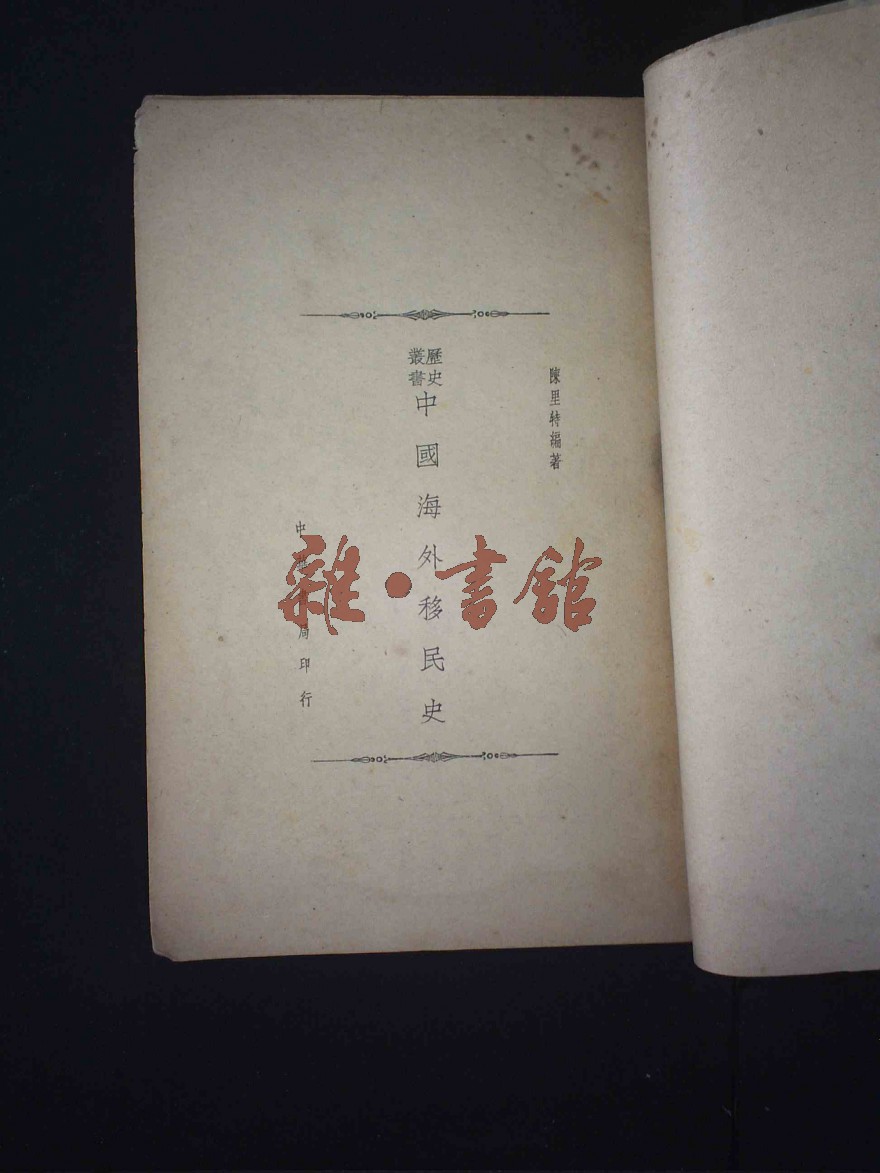 陳里特編著
歷史叢書
中國海外移民史
中華書局印行
雜·書館